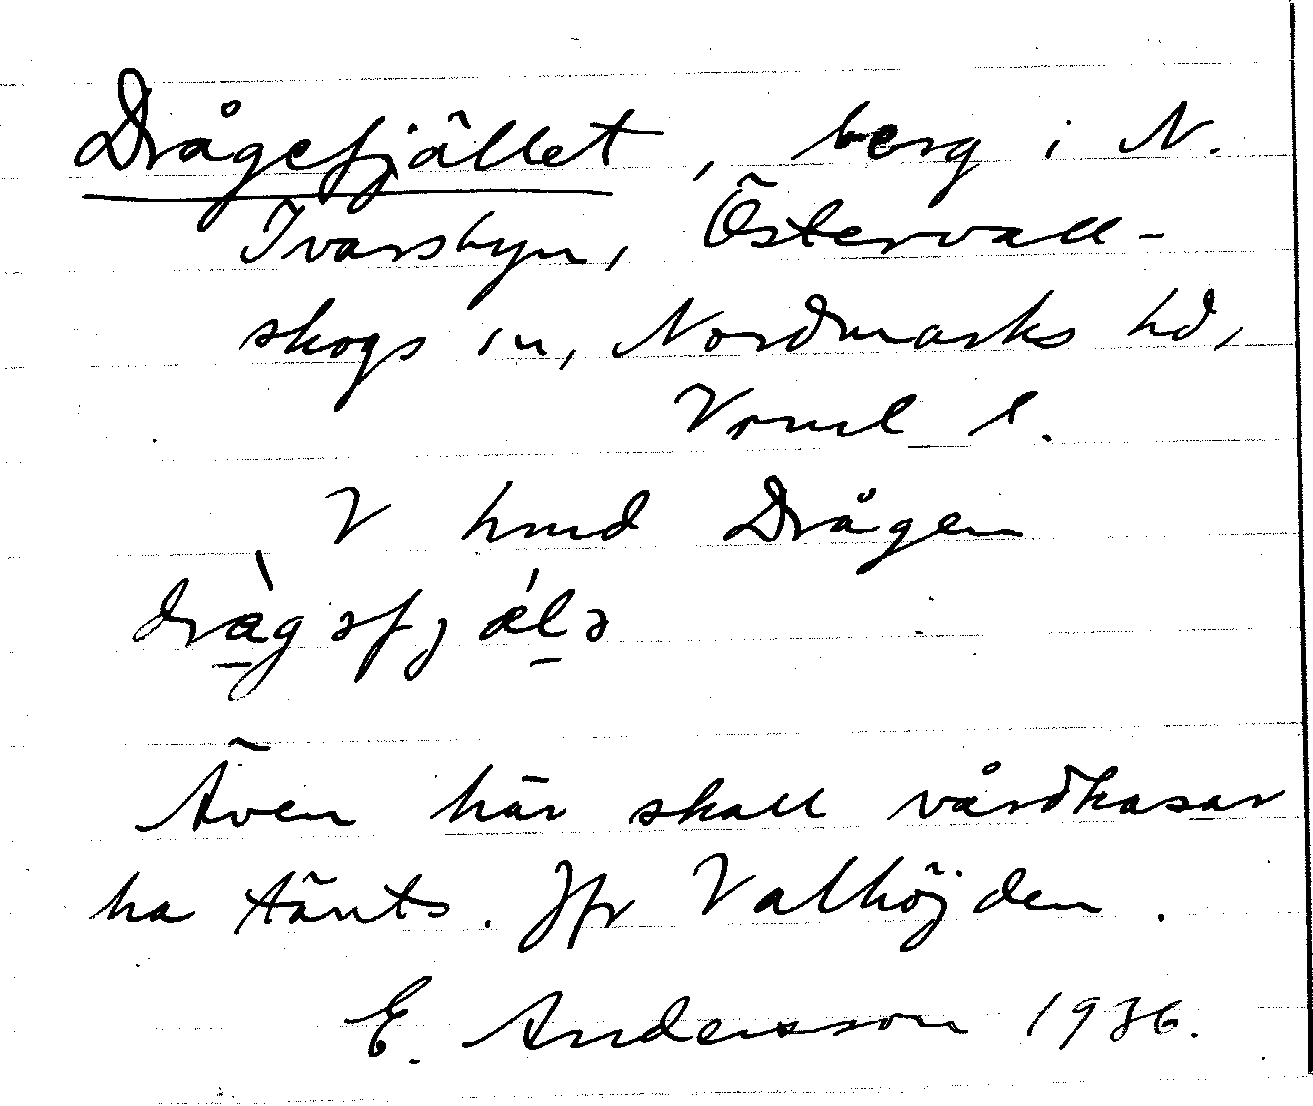 Drågefjället, berg i N.
Ivarsbyn, Östervall-
skogs sn, Nordmarks hd,
Vrml l.
V hmd Drågen
dràgəfjǽlə
Även här skall vårdkasar
ha tänts. Jfr Valhöjden.
E. Andersson 1936.